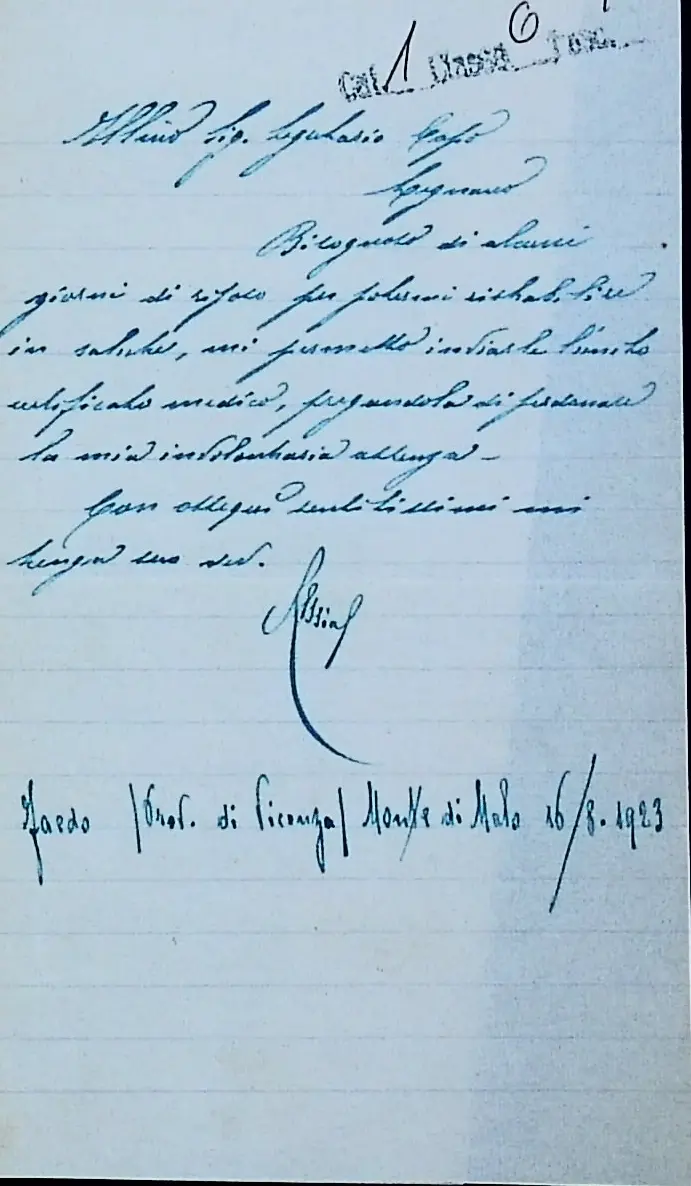 Cat. 1 Classe 6 Fasc.
Ill.mo Sig. Segretario Capo
Legnano
Bisognoso di alcuni
giorni di riposo per potermi ristabilire
in salute, mi permetto inviarle l'unito
certificato medico, pregandola di perdonare
la mia involontaria assenza -
Con ossequi sentitissimi mi
tenga suo dev.
Faedo / Prov. di Vicenza / Monte di Malo 16/8.1923